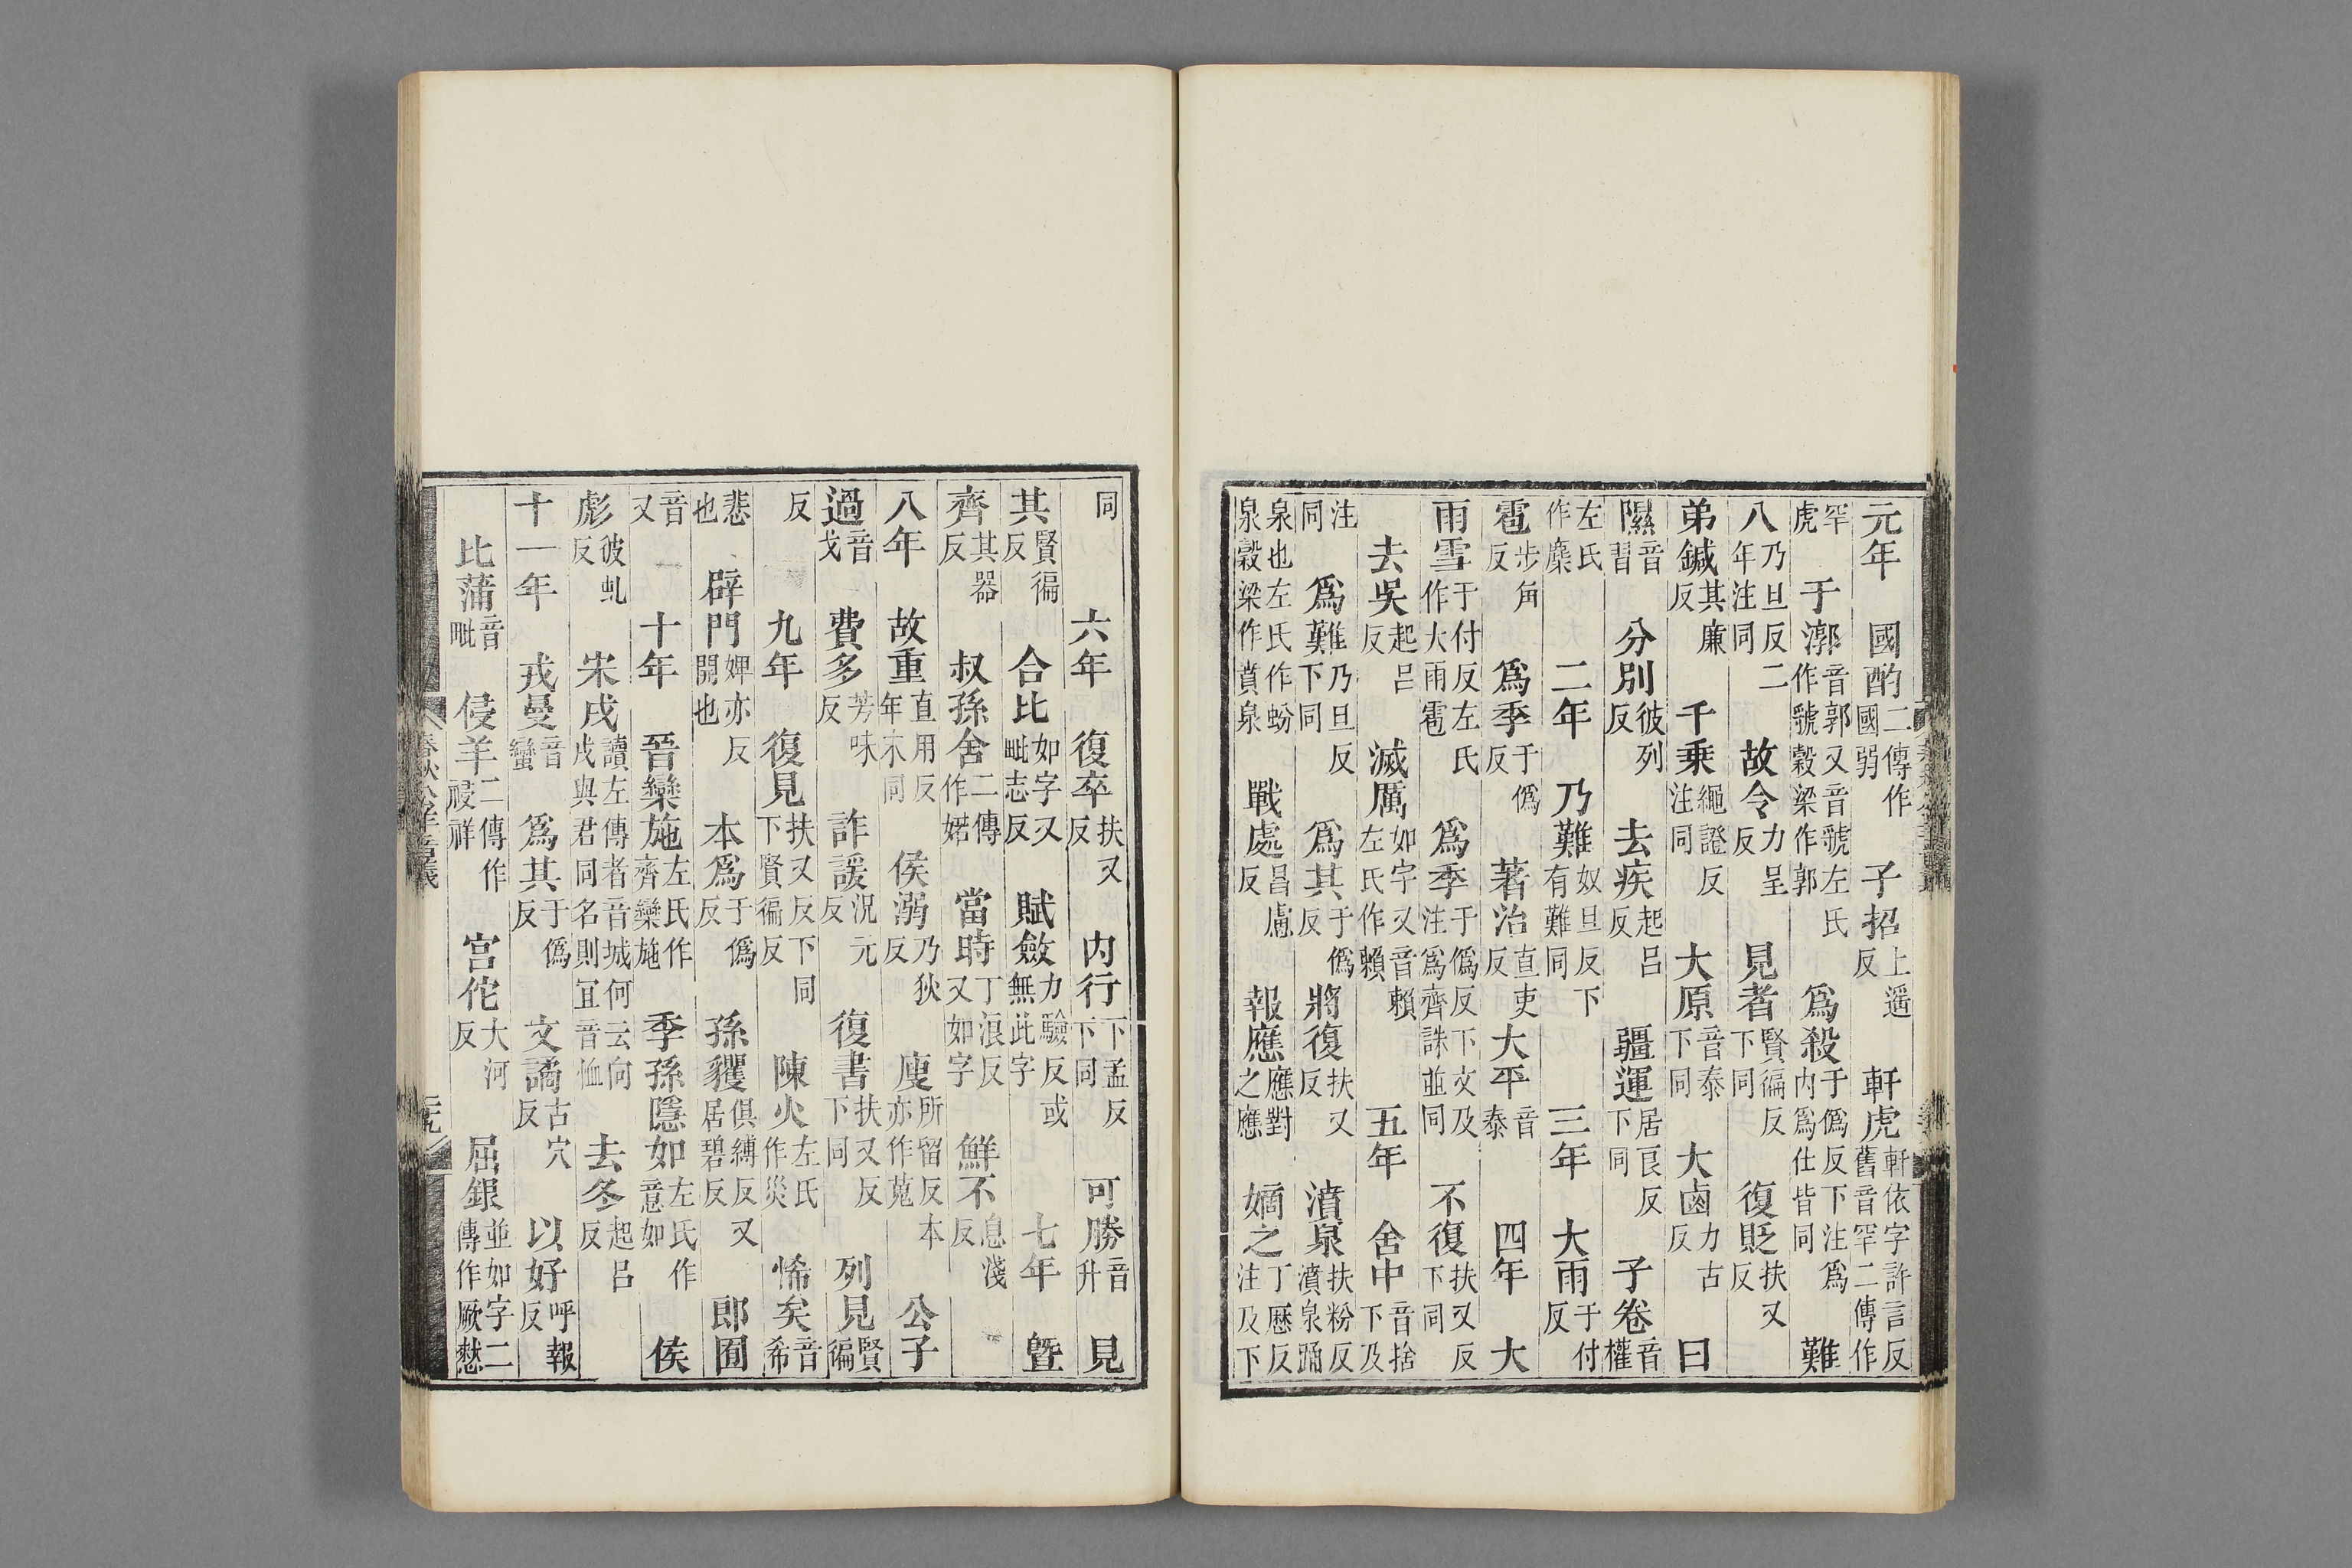 元年 國酌二傳作國弱 子招上遥反 軒虎軒依字許言反舊音罕二傳作
罕虎 于漷音郭又音虢左氏作虢穀梁作郭 爲殺于僞反下注爲内爲仕皆同 難
八乃旦反二年注同 故令力呈反 見者賢徧反下同 復貶扶又反
弟鍼其廉反 千乗繩證反注同 大原音泰下同 大鹵力古反 曰
隰音習 分別彼列反 去疾起呂反 疆運居良反下同 子卷音權
左氏作麇 二年 乃難奴旦反下有難同 三年 大雨于付反
雹步角反 爲季于僞反 著治直吏反 大平音泰 四年 大
雨雪于付反左氏作大雨雹 爲季于僞反下文及注爲齊誅並同 不復扶又反下同
去吳起呂反 滅厲如字又音賴左氏作賴 五年 舍中音捨下及
注同 爲難乃旦反下同 爲其于僞反 將復扶又反 濆泉扶粉反濆泉踊
泉也左氏作蚡泉穀梁作賁泉 戰處昌慮反 報應應對之應 嫡之丁歷反注及下
同 六年 復卒扶又反 内行下孟反下同 可勝音升 見
其賢徧反 合比如字又毗志反 賦斂力驗反或無此字 七年 暨
齊其器反 叔孫舍二傳作婼 當時丁浪反又如字 鮮不息淺反
八年 故重直用反年末同 侯溺乃狄反 廋所留反本亦作蒐 公子
過音戈 費多芳味反 詐諼況元反 復書扶又反下同 列見賢徧
反 九年 復見扶又反下同下賢徧反 陳火左氏作災 悕矣音希
悲也 辟門婢亦反開也 本爲于僞反 孫貜俱縛反又居碧反 郎囿
音又 十年 晉欒施左氏作齊欒施 季孫隱如左氏作意如 侯
彪彼虬反 宋戌讀左傳者音城何云向戌與君同名則冝音恤 去冬起呂反
十一年 戎曼音蠻 爲其于僞反 文譎古穴反 以好呼報反
比蒲音毗 侵羊二傳作祲祥 宫佗大河反 屈銀並如字二傳作厥憖
春秋公羊音義